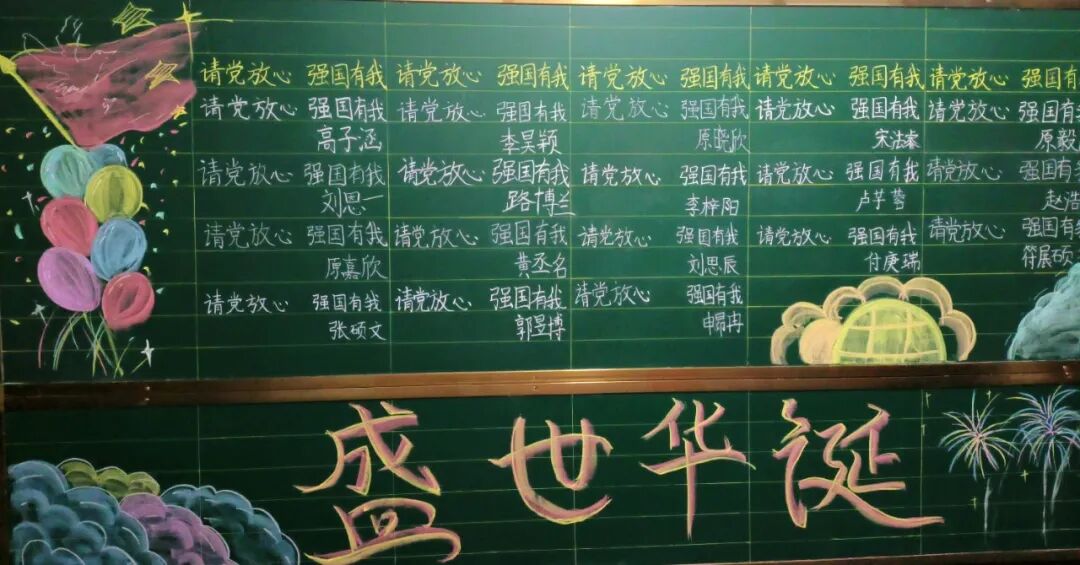 请党放心 强国有我 请党放心 强国有我 请党放心 强国有我 请党放心 强国有我 请党放心 强国有
请党放心 强国有我 请党放心 强国有我 请党放心 强国有我 请党放心 强国有我 请党放心 强国有
高子涵 李昊颖 原晓欣 宋洁睿 原毅
请党放心 强国有我 请党放心 强国有我 请党放心 强国有我 请党放心 强国有我 请党放心 强国有
刘思一 路博兰 李梓阳 卢芋莺 赵浩
请党放心 强国有我 请党放心 强国有我 请党放心 强国有我 请党放心 强国有我 请党放心 强国有
原嘉欣 黄丞名 刘思辰 付庚瑞 符展硕
请党放心 强国有我 请党放心 强国有我 请党放心 强国有我
张硕文 郭昱博 申昂冉
盛世华诞